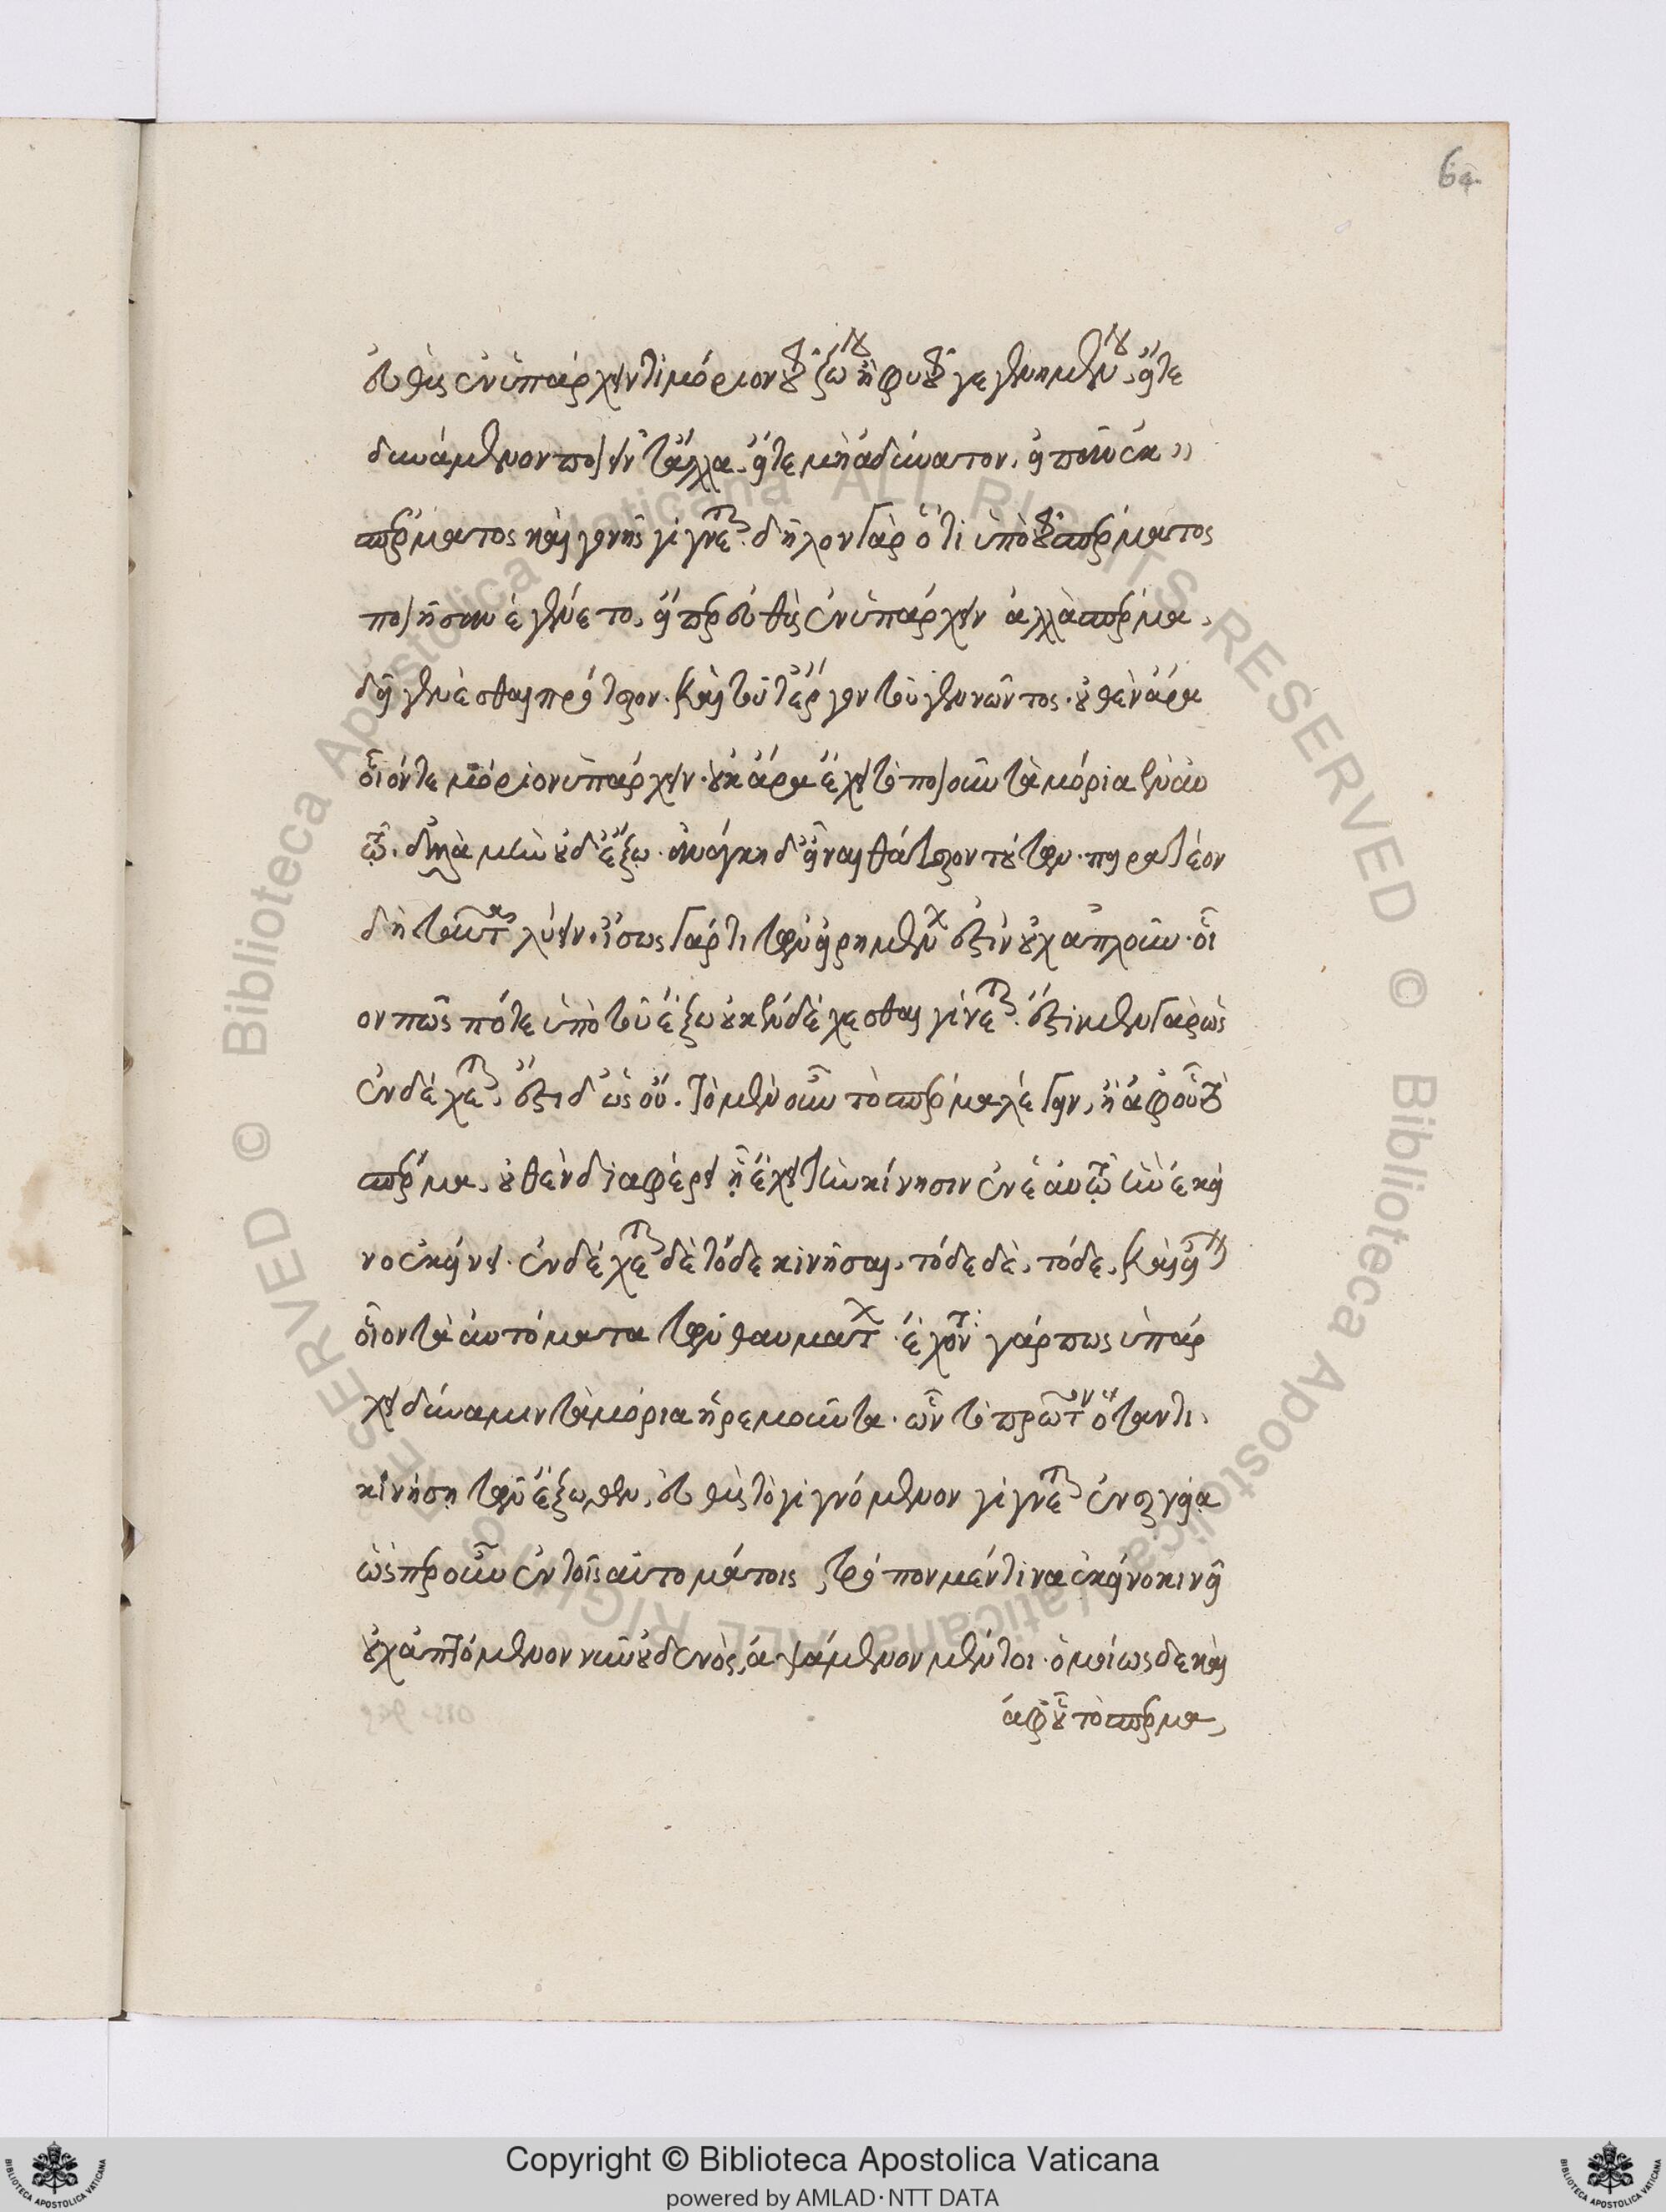 64
εὐθὺς ἐνυπάρχειν τι μόριον τοῦ ζώου ἢ φυτοῦ γεγενημένον, εἴτε
δυνάμενον ποιεῖν τἆλλα, εἴτε μὴ ἀδύνατον, εἰ πᾶν ἐκ
σπέρματος καὶ γονῆς γίγνεται. δῆλον γὰρ ὅτι ὑπὸ τοῦ σπέρματος
ποιήσαν ἐγένετο, εἴπερ εὐθὺς ἐνυπάρχειν ἀλλὰ σπέρμα,
δεῖ γενέσθαι πρότερον. καὶ τοῦτ' ἔργον τοῦ γεννῶντος. οὐθὲν ἄρα
οἷόν τε μόριον ὑπάρχειν. οὐκ ἄρα ἔχει τὸ ποιοῦν τὰ μόρια ἐν αὑ
τῷ. ἀλλὰ μὴν οὐδ' ἔξω. ἀνάγκη δ' εἶναι θάτερον τούτων. πειρατέον
δὴ ταῦτα λύειν. ἴσως γάρ τι τῶν εἰρημένων ἐστὶν οὐχ ἁπλοῦν. οἷ
ον πῶς ποτε ὑπὸ τοῦ ἔξω οὐκ ἐνδέχεσθαι γίνεται. ἔστι μὲν γὰρ ὡς
ἐνδέχεται, ἔστι δ' ὡς οὔ. τὸ μὲν οὖν τὸ σπέρμα λέγειν, ἢ ἀφ' οὗ τὸ
σπέρμα, οὐθὲν διαφέρει ᾗ ἔχει τὴν κίνησιν ἐν ἑαυτῷ ἣν ἐκεῖ
νο ἐκίνει. ἐνδέχεται δὲ τόδε κινῆσαι, τόδε δὲ, τόδε, καὶ εἶναι
οἷον τὰ αὐτόματα τῶν θαυμάτων. ἔχοντα γάρ πως ὑπάρ
χει δύναμιν τὰ μόρια ἠρεμοῦντα. ὧν τὸ πρῶτον ὅταν τι
κινήσῃ τῶν ἔξωθεν, εὐθὺς τὸ γιγνόμενον γίγνεται ἐνεργείᾳ
ὥσπερ οὖν ἐν τοῖς αὐτομάτοις, τρόπον μέν τινα ἐκεῖνο κινεῖ
οὐχ ἁπτόμενον νῦν οὐδενὸς, ἁψάμενον μέντοι. ὁμοίως δὲ καὶ
ἀφ' οὗ τὸ σπέρμα,
Copyright © Biblioteca Apostolica Vaticana
powered by AMLAD·NTT DATA